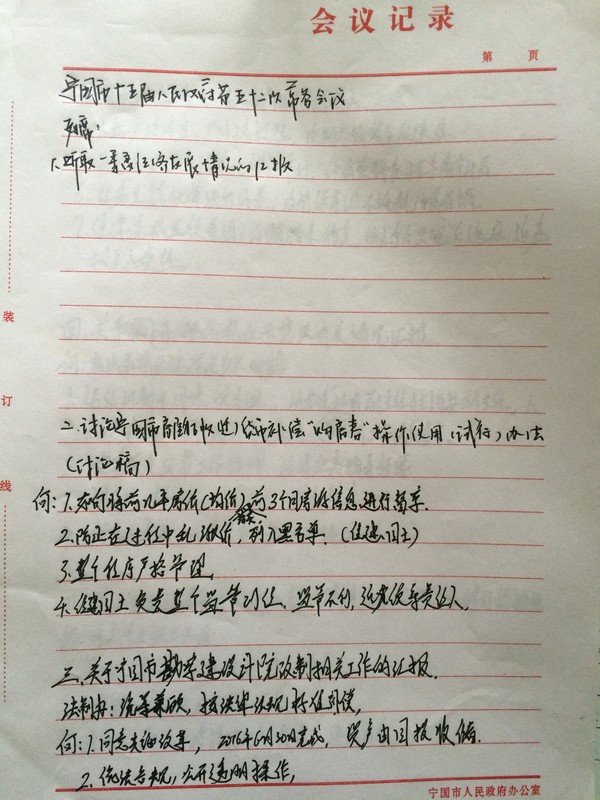 会议记录
第 页
宁国市十五届人民政府第五十二次常务会议
列席：
1、听取一季度经济发展情况的汇报
二、讨论宁国市房屋征收(迁)货币补偿“购房券”操作使用(试行)办法
(讨论稿)
何：1、如何将前几年房价(均价)前3个月房源信息进行
2、防止在过程中乱涨价，列入黑名单。(住建、国土)
3、整个程序严格管理，
4、住建国土负责整个监管到位，监管不到，追究领导责任人。
三、关于宁国市勘察建设计院改制相关工作的汇报。
法制办：统筹兼顾，按法律法规标准补偿，
何：1、同意先的改革，2016年6月30日完成，资产由国投收储。
2、依法合规，公开透明操作，
装
订
线
宁国市人民政府办公室